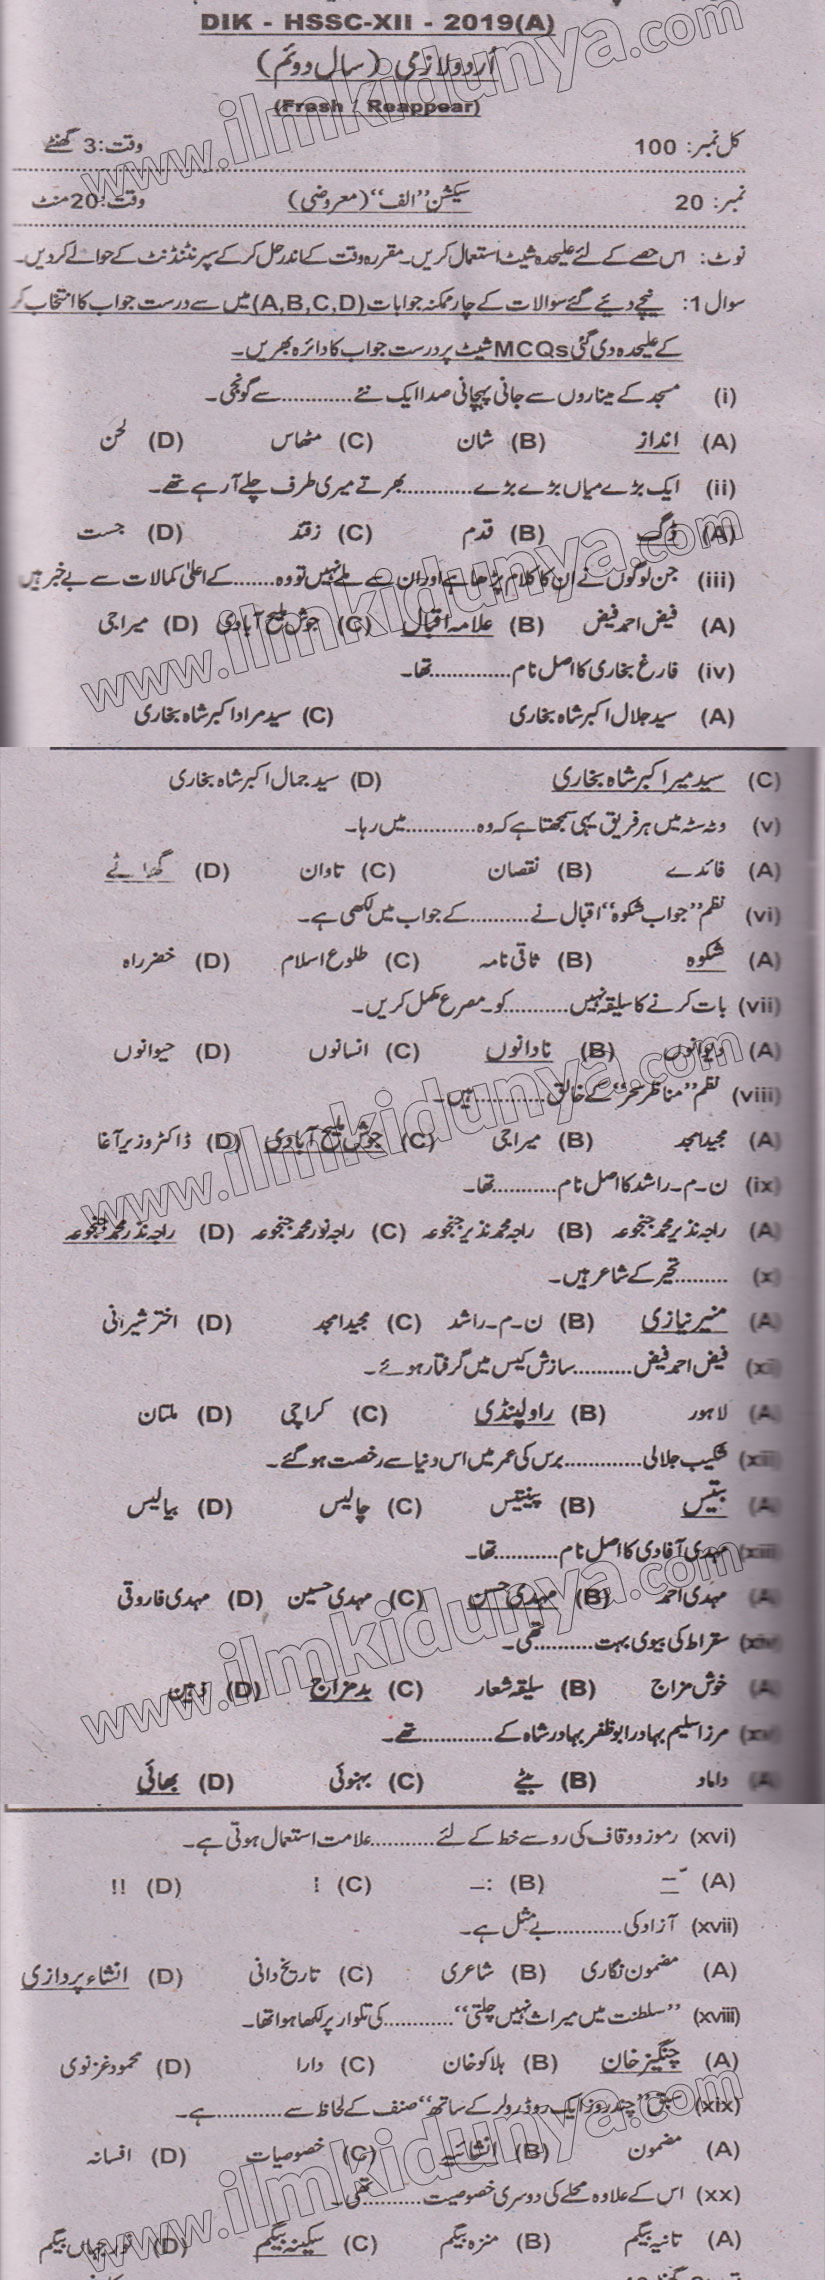 DIK - HSSC-XII - 2019(A)
اُردو لازمی (سال دوئم)
(Fresh / Reappear)
کل نمبر: 100 وقت: 3 گھنٹے
نمبر: 20 سیکشن "الف" (معروضی) وقت: 20 منٹ
نوٹ: اس حصے کے لئے علیحدہ شیٹ استعمال کریں۔ مقررہ وقت کے اندر حل کر کے سپرنٹنڈنٹ کے حوالے کر دیں۔
سوال 1: نیچے دیئے گئے سوالات کے چار ممکنہ جوابات (A,B,C,D) میں سے درست جواب کا انتخاب کر
کے علیحدہ دی گئی MCQs شیٹ پر درست جواب کا دائرہ بھریں۔
(i) مسجد کے میناروں سے جانی پہچانی صدا ایک نئے ............ سے گونجی۔
(A) انداز (B) شان (C) مٹھاس (D) لحن
(ii) ایک بڑے میاں بڑے بڑے ............ بھرتے میری طرف چلے آ رہے تھے۔
(A) ڈگ (B) قدم (C) زقند (D) جست
(iii) جن لوگوں نے ان کا کلام پڑھا ہے اور ان سے ملے نہیں تو وہ ....... کے اعلیٰ کمالات سے بے خبر ہیں
(A) فیض احمد فیض (B) علامہ اقبال (C) جوش ملیح آبادی (D) میراجی
(iv) فارغ بخاری کا اصل نام .............. تھا۔
(A) سید جلال اکبر شاہ بخاری (C) سید مراد اکبر شاہ بخاری
(C) سید میر اکبر شاہ بخاری (D) سید جمال اکبر شاہ بخاری
(v) وٹہ سٹہ میں ہر فریق یہی سمجھتا ہے کہ وہ ............ میں رہا۔
(A) فائدے (B) نقصان (C) تاوان (D) گھاٹے
(vi) نظم "جواب شکوہ" اقبال نے .......... کے جواب میں لکھی ہے۔
(A) شکوہ (B) ثاقی نامہ (C) طلوع اسلام (D) خضر راہ
(vii) بات کرنے کا سلیقہ نہیں .......... کو۔ مصرع مکمل کریں۔
(A) دیوانوں (B) نادانوں (C) انسانوں (D) حیوانوں
(viii) نظم "مناظر سحر" کے خالق ............ ہیں۔
(A) مجید امجد (B) میراجی (C) جوش ملیح آبادی (D) ڈاکٹر وزیر آغا
(ix) ن۔م۔راشد کا اصل نام ........... تھا۔
(A) راجہ نذیر محمد جنجوعہ (B) راجہ محمد نذیر جنجوعہ (C) راجہ نور محمد جنجوعہ (D) راجہ نذر محمد جنجوعہ
(x) ......... تحیر کے شاعر ہیں۔
(A) منیر نیازی (B) ن۔م۔راشد (C) مجید امجد (D) اختر شیرانی
(xi) فیض احمد فیض .......... سازش کیس میں گرفتار ہوئے۔
(A) لاہور (B) راولپنڈی (C) کراچی (D) ملتان
(xii) شکیب جلالی ............. برس کی عمر میں اس دنیا سے رخصت ہو گئے۔
(A) بتیس (B) پینتیس (C) چالیس (D) بیالیس
(xiii) مہدی آفادی کا اصل نام ........... تھا۔
(A) مہدی احمد (B) مہدی حسن (C) مہدی حسین (D) مہدی فاروقی
(xiv) سقراط کی بیوی بہت .......... تھی۔
(A) خوش مزاج (B) سلیقہ شعار (C) بد مزاج (D) ذہین
(xv) مرزا سلیم بہادر ابو ظفر بہادر شاہ کے ............ تھے۔
(A) داماد (B) بیٹے (C) بہنوئی (D) بھائی
(xvi) رموز و وقاف کی رو سے خط کے لئے ........... علامت استعمال ہوتی ہے۔
(A) – (B) :– (C) ! (D) !!
(xvii) آزاد کی ........... بے مثل ہے۔
(A) مضمون نگاری (B) شاعری (C) تاریخ دانی (D) انشاء پردازی
(xviii) "سلطنت میں میراث نہیں چلتی" ............ کی تلوار پر لکھا ہوا تھا۔
(A) چنگیز خان (B) ہلاکو خان (C) دارا (D) محمود غزنوی
(xix) سبق "چند روز ایک روڈ رولر کے ساتھ" صنف کے لحاظ سے ........... ہے۔
(A) مضمون (B) انشائیے (C) خصوصیات (D) افسانہ
(xx) اس کے علاوہ محلے کی دوسری خصوصیت .......... تھی۔
(A) تانیہ بیگم (B) منزہ بیگم (C) سکینہ بیگم (D) نور جہاں بیگم
www.ilmkidunya.com
www.ilmkidunya.com
www.ilmkidunya.com
www.ilmkidunya.com
www.ilmkidunya.com